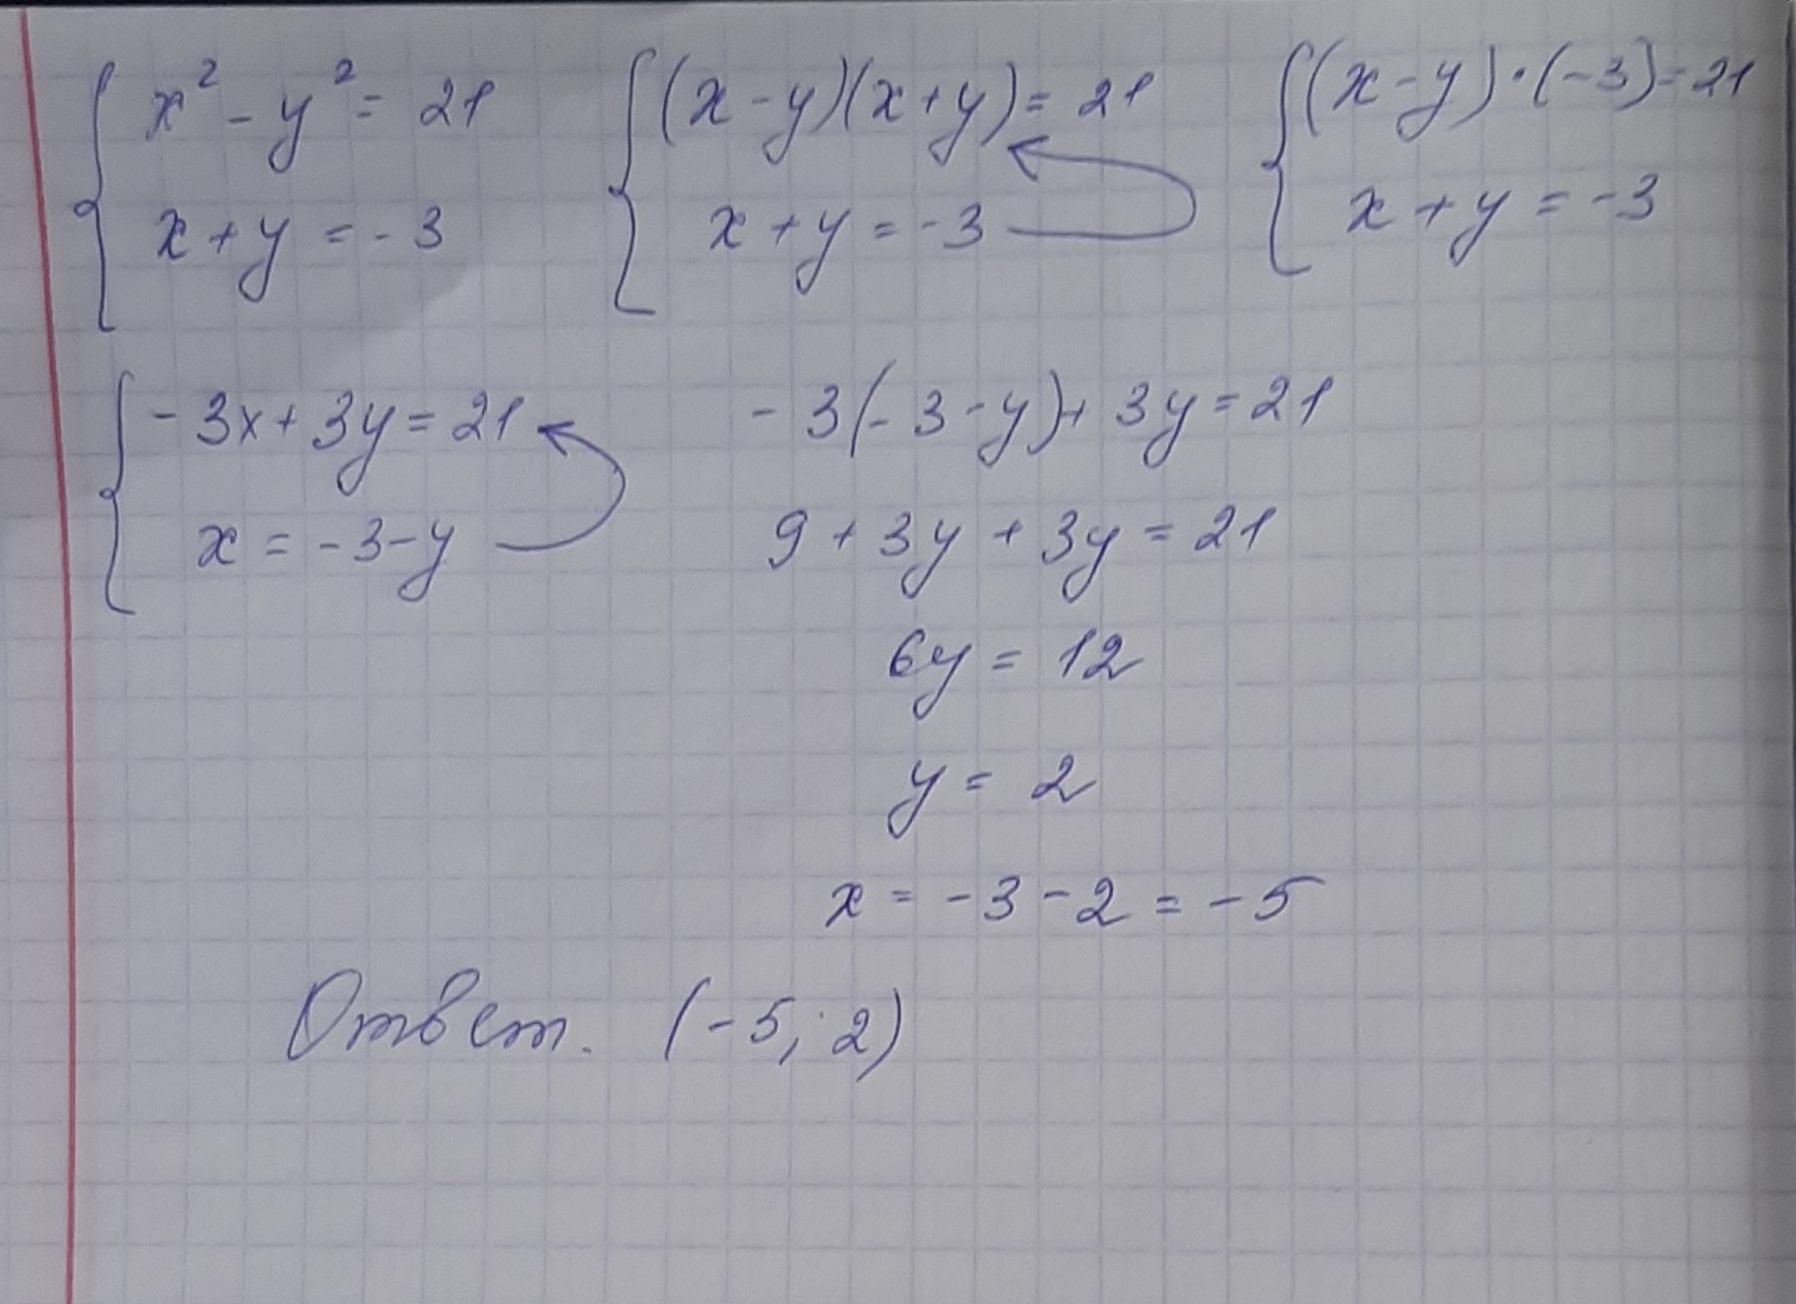 { x² - y² = 21 { (x - y)(x + y) = 21 { (x - y) · (-3) = 21
x + y = -3 x + y = -3 x + y = -3
{ -3x + 3y = 21 -3(-3 - y) + 3y = 21
x = -3 - y 9 + 3y + 3y = 21
6y = 12
y = 2
x = -3 - 2 = -5
Ответ. (-5; 2)